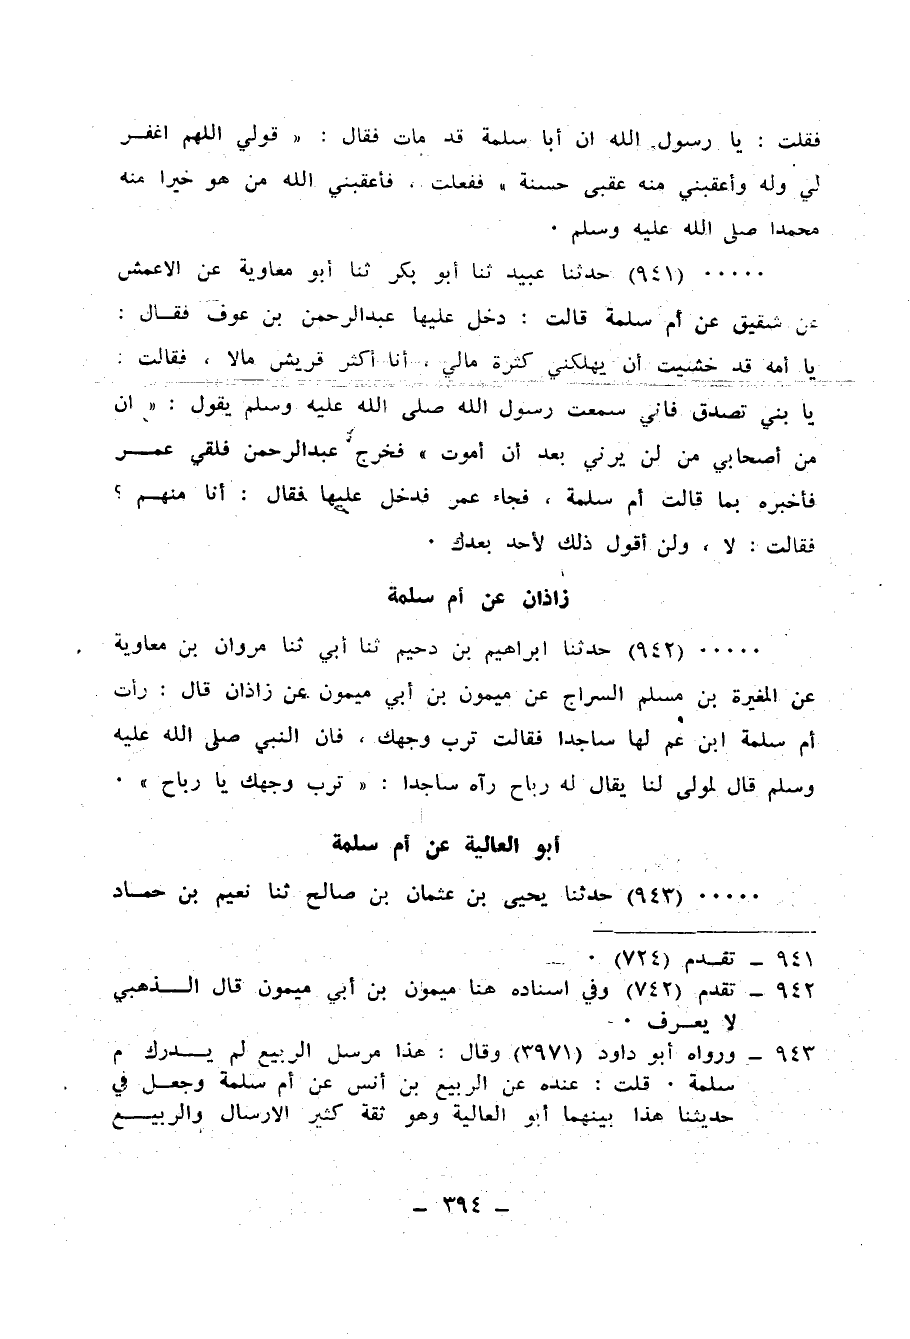 فقلت : يا رسول الله ان أبا سلمة قد مات فقال : « قولي اللهم اغفـر
لي وله وأعقبني منه عقبى حسنة » ففعلت ، فأعقبني الله من هو خيرا منه
محمدا صلى الله عليه وسلم ٠
٠٠٠٠٠ (٩٤١) حدثنا عبيد ثنا أبو بكر ثنا أبو معاوية عن الاعمش
عن شقيق عن أم سلمة قالت : دخل عليها عبدالرحمن بن عوف فقـال :
يا أمه قد خشيت أن يهلكني كثرة مالي ، أنا أكثر قريش مالا ، فقالت :
يا بني تصدق فاني سمعت رسول الله صلى الله عليه وسلم يقول : « ان
من أصحابي من لن يرني بعد أن أموت » فخرج عبدالرحمن فلقي عمـر
فأخبره بما قالت أم سلمة ، فجاء عمر فدخل عليها فقال : أنا منهـم ؟
فقالت : لا ، ولن أقول ذلك لأحد بعدك ٠
زاذان عن أم سلمة
٠٠٠٠٠ (٩٤٢) حدثنا ابراهيم بن دحيم ثنا أبي ثنا مروان بن معاوية
عن المغيرة بن مسلم السراج عن ميمون بن أبي ميمون عن زاذان قال : رأت
أم سلمة ابن عم لها ساجدا فقالت ترب وجهك ، فان النبي صلى الله عليه
وسلم قال لمولى لنا يقال له رباح رآه ساجدا : « ترب وجهك يا رباح » ٠
أبو العالية عن أم سلمة
٠٠٠٠٠ (٩٤٣) حدثنا يحيى بن عثمان بن صالح ثنا نعيم بن حمـاد
٩٤١ ـ تقـدم (٧٢٤) ٠
٩٤٢ ـ تقدم (٧٤٢) وفي اسناده هنا ميمون بن أبي ميمون قال الـذهبي
لا يعـرف ٠
٩٤٣ ـ ورواه أبو داود (٣٩٧١) وقال : هذا مرسل الربيع لم يـدرك م
سلمة ٠ قلت : عنده عن الربيع بن أنس عن أم سلمة وجعـل في
حديثنا هذا بينهما أبو العالية وهو ثقة كثير الارسال والربيـع
ـ ٣٩٤ ـ